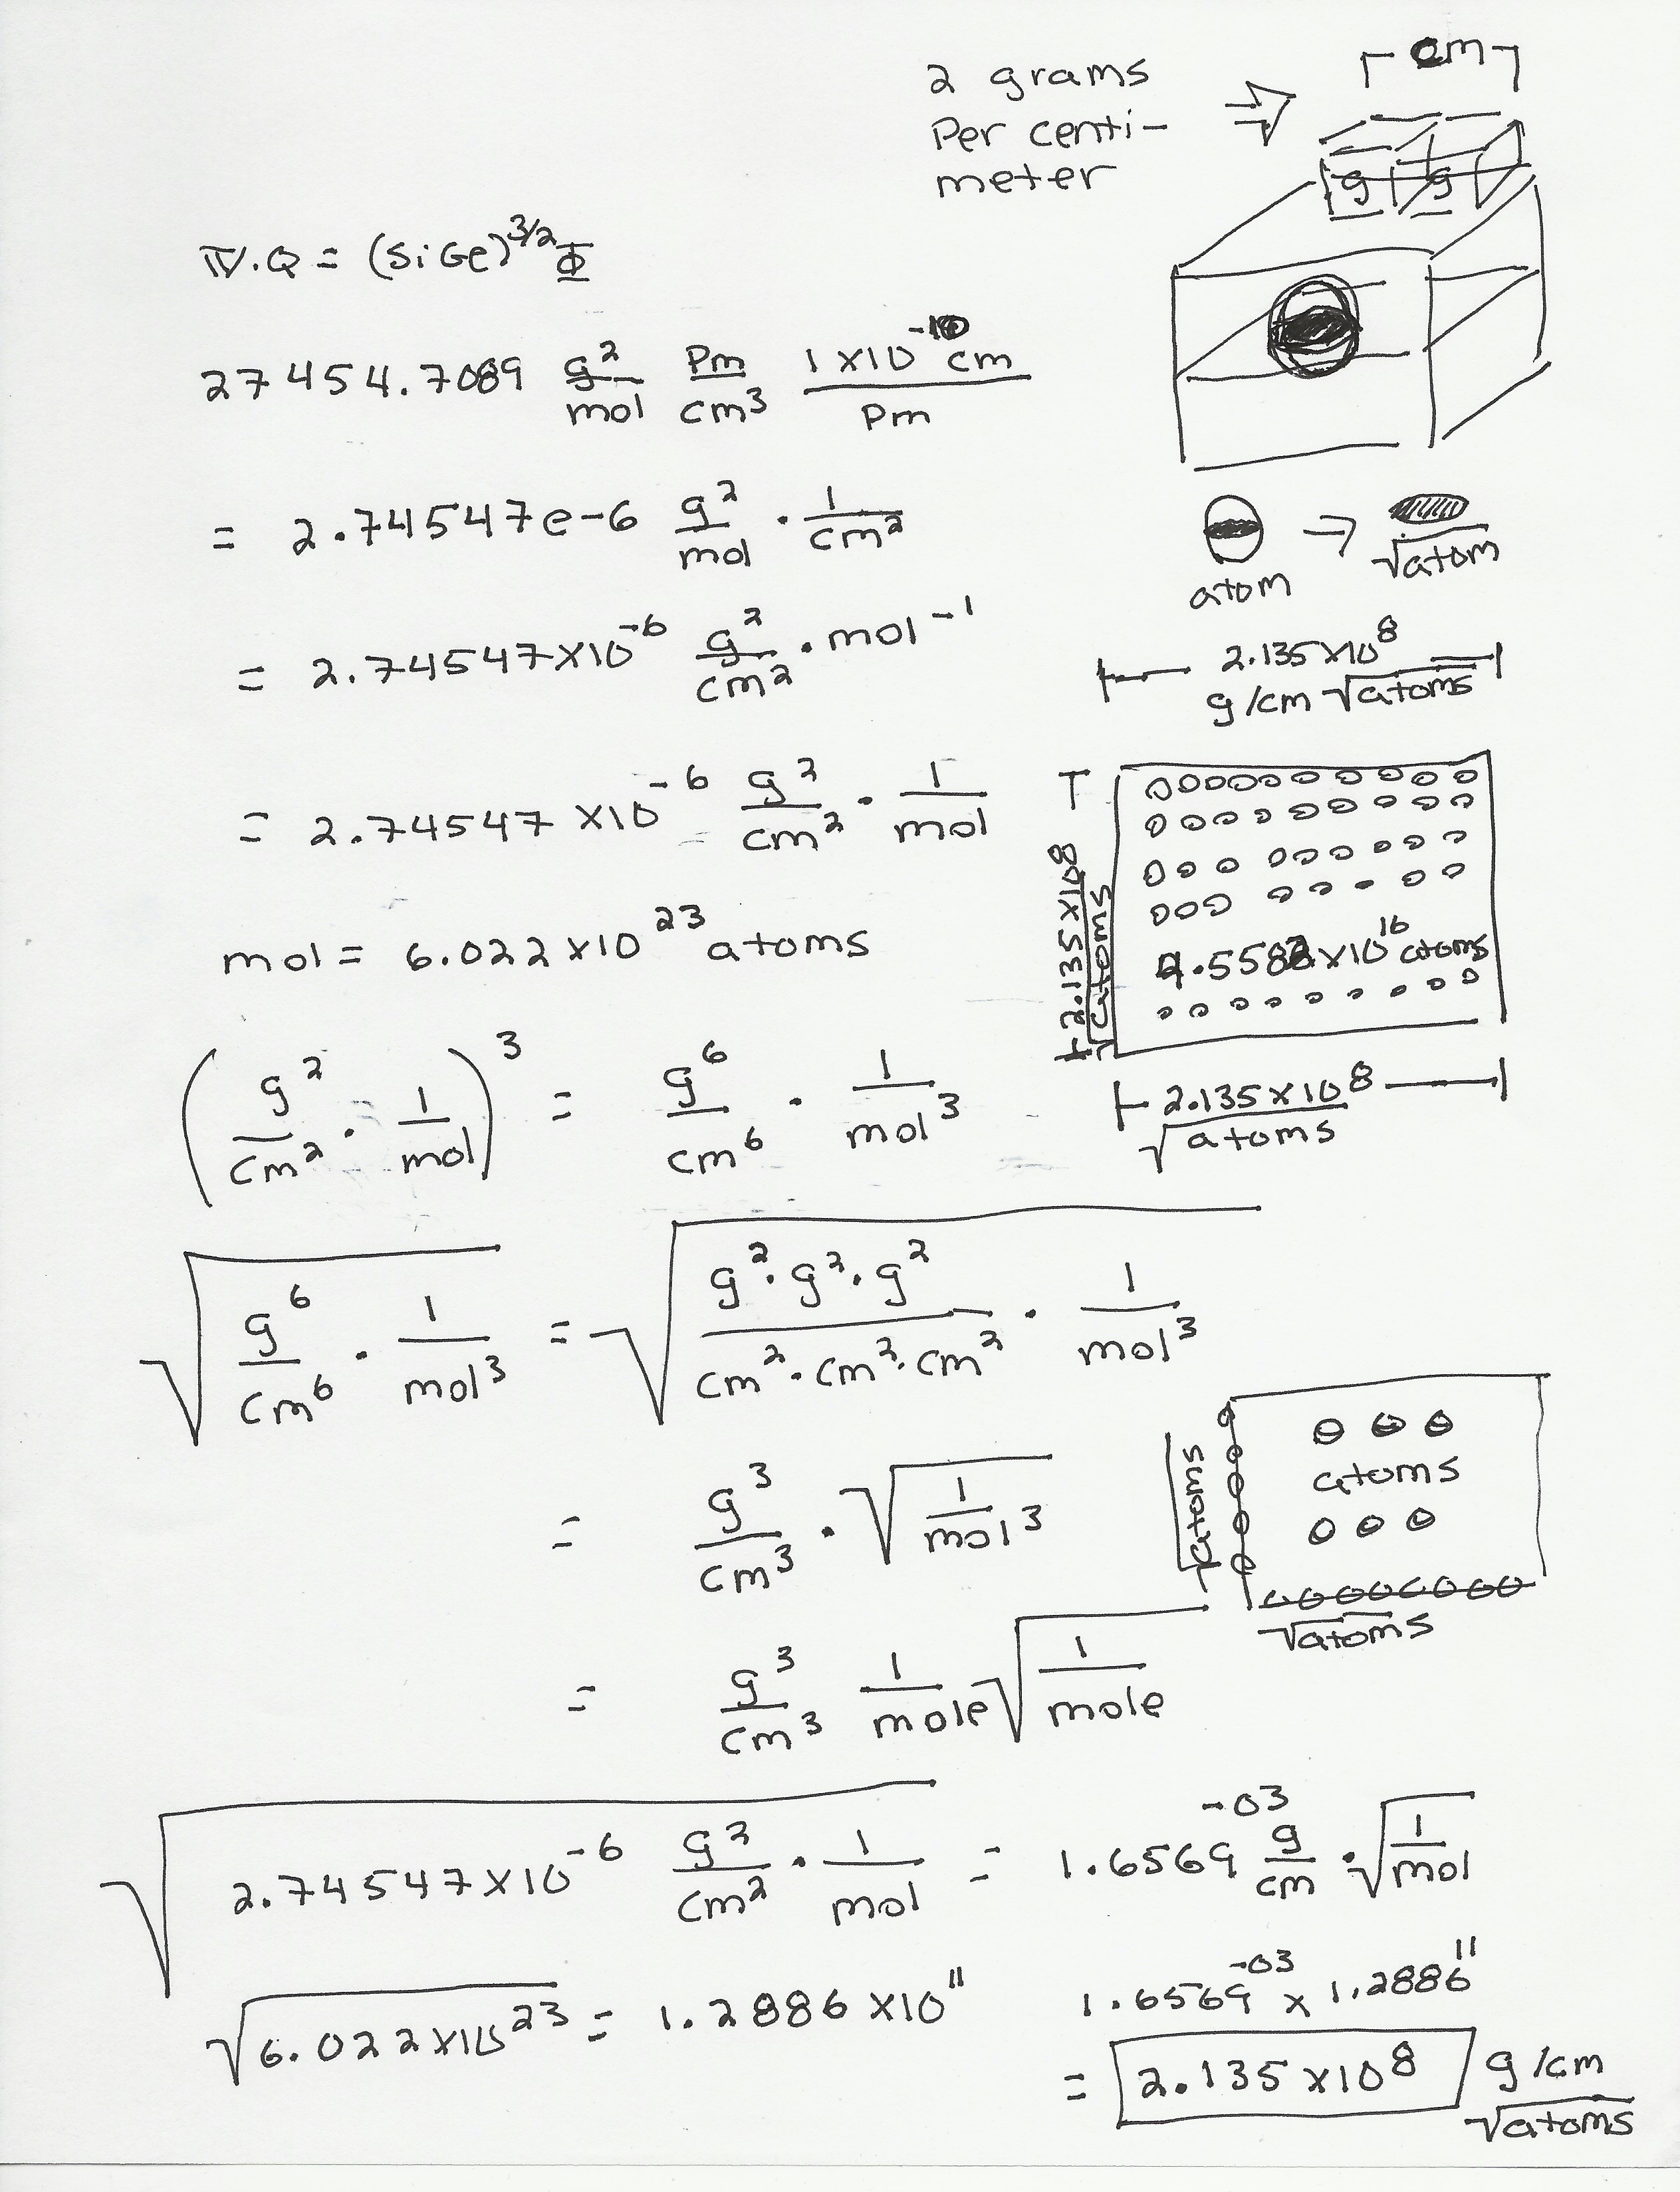 2 grams
Per centi-
meter
cm
g g
IV. Q = (SiGe)^3/2 Φ
27454.7089 g²/mol pm/cm³ 1×10^-10 cm/pm
= 2.74547e-6 g²/mol · 1/cm²
atom → √atom
= 2.74547×10^-6 g²/cm² · mol^-1
2.135×10^8
g/cm √atoms
= 2.74547×10^-6 g²/cm² · 1/mol
2.135×10^8
√atoms
mol = 6.022×10^23 atoms
×10^16 atoms
2.135×10^8
√atoms
(g²/cm² · 1/mol)³ = g⁶/cm⁶ · 1/mol³
√(g⁶/cm⁶ · 1/mol³) = √(g²·g²·g²/cm²·cm²·cm² · 1/mol³)
atoms
√atoms
√atoms
= g³/cm³ · √(1/mol³)
= g³/cm³ 1/mole √(1/mole)
√(2.74547×10^-6 g²/cm² · 1/mol) = 1.6569^-03 g/cm · √(1/mol)
√(6.022×10^23) = 1.2886×10^11
1.6569^-03 × 1.2886^11
= 2.135×10^8 g/cm
√atoms